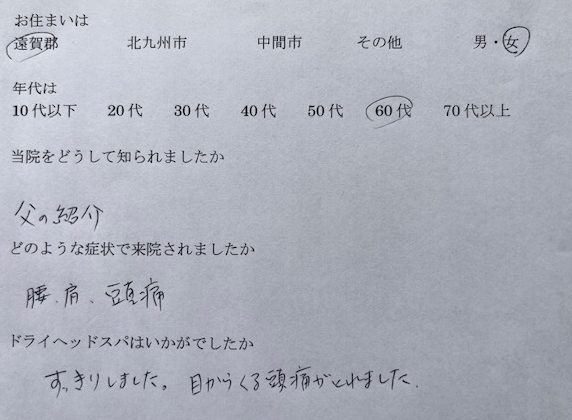 お住まいは
遠賀郡 北九州市 中間市 その他 男・女
年代は
10代以下 20代 30代 40代 50代 60代 70代以上
当院をどうして知られましたか
父の紹介
どのような症状で来院されましたか
腰、肩、頭痛
ドライヘッドスパはいかがでしたか
すっきりしました。目からくる頭痛がとれました。